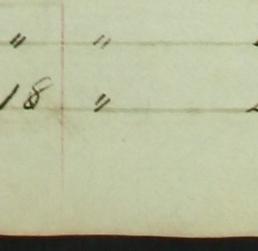 " "
18 "